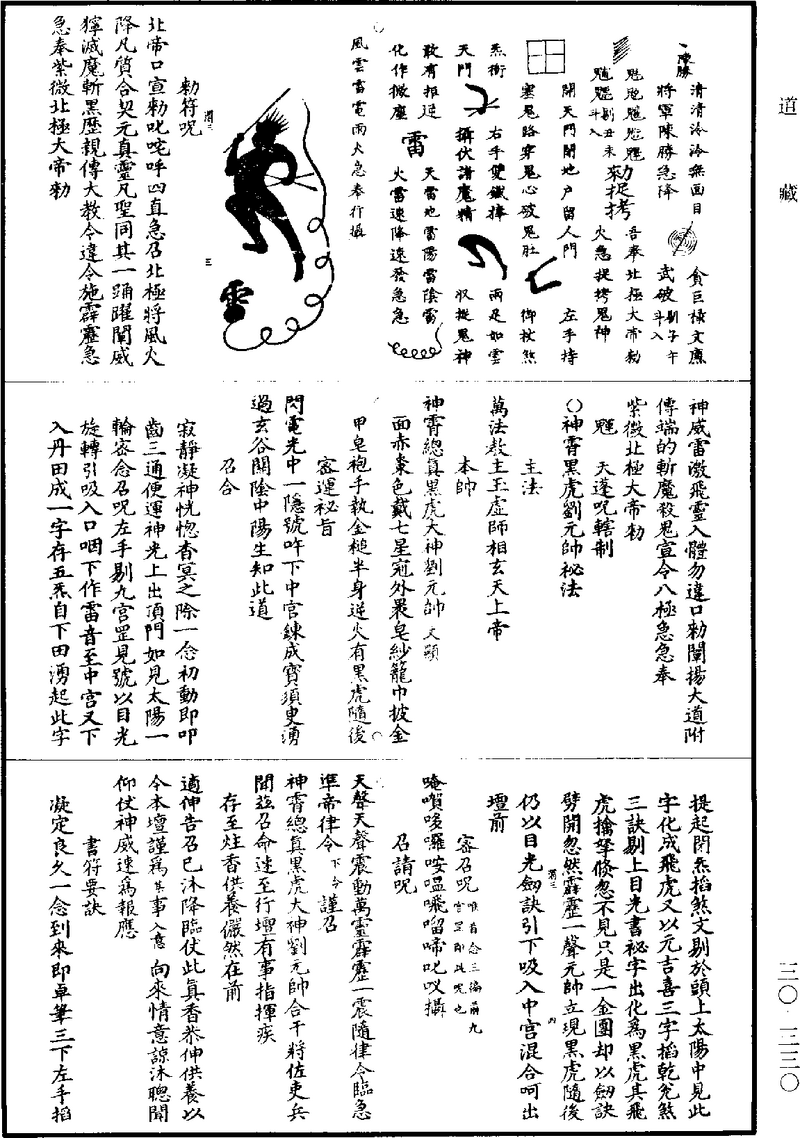 道藏
三〇·三二〇
清清泠泠無面目
將軍陳勝急降
貪巨祿文廉
武破
吾奉北極大帝勑
火急捉拷鬼神
開天門閉地户留人門
左手持
塞鬼路穿鬼心破鬼肚
御杖煞
炁衝
右手雙鐵棒
兩足如雲
天門
攝伏諸魔精
収捉鬼神
敢有拒逆
天雷地雷陽雷陰雷
化作微塵
雷
火雷速降速發急急
風雲雷電雨火急奉行攝
勑符呪
北帝口宣勑叱咤呼四直急召北極將風火
降凡質合契元真靈凡聖同其一踊躍闡威
獰滅魔斬黑歷親傳大教令違令施霹靂急
急奉紫微北極大帝勑
神威雷激飛靈入體勿違口勑闡揚大道附
傳端的斬魔殺鬼宣令八極急急奉
紫微北極大帝勑
天蓬呪轄制
○神霄黑虎劉元帥秘法
主法
萬法教主玉虛師相玄天上帝
本帥
神霄總真黑虎大神劉元帥
面赤棗色戴七星冠外裹皂紗籠巾披金
甲皂袍手執金槌半身逆火有黑虎隨後
密運祕旨
閃電光中一隱號吽下中宮鍊成寶須臾湧
過玄谷關陰中陽生知此道
召合
寂靜凝神恍惚杳冥之際一念初動即叩
齒三通便運神光上出頂門如見太陽一
輪密念召呪左手剔九宮罡見號以目光
旋轉引吸入口咽下作雷音至中宮又下
入丹田成一字存五炁自下田湧起此字
提起閉炁掐煞文剔於頭上太陽中見此
字化成飛虎又以元吉喜三字掐乾兌煞
三訣剔上目光書祕字出化為黑虎其飛
虎擒拏倏忽不見只是一金團却以劒訣
劈開忽然霹靂一聲元帥立現黑虎隨後
仍以目光劒訣引下吸入中宮混合呵出
壇前
密召呪
召請呪
天聲天聲震動萬靈霹靂一震隨律令臨急
準帝律令下令謹召
神霄總真黑虎大神劉元帥合干將佐吏兵
聞茲召命速至行壇有事指揮疾
存至炷香供養儼然在前
適伸告召已沐降臨仗此真香恭伸供養以
今本壇謹為某事入意向來情意諒沐聰聞
仰仗神威速為報應
書符要訣
凝定良久一念到來即卓筆三下左手掐